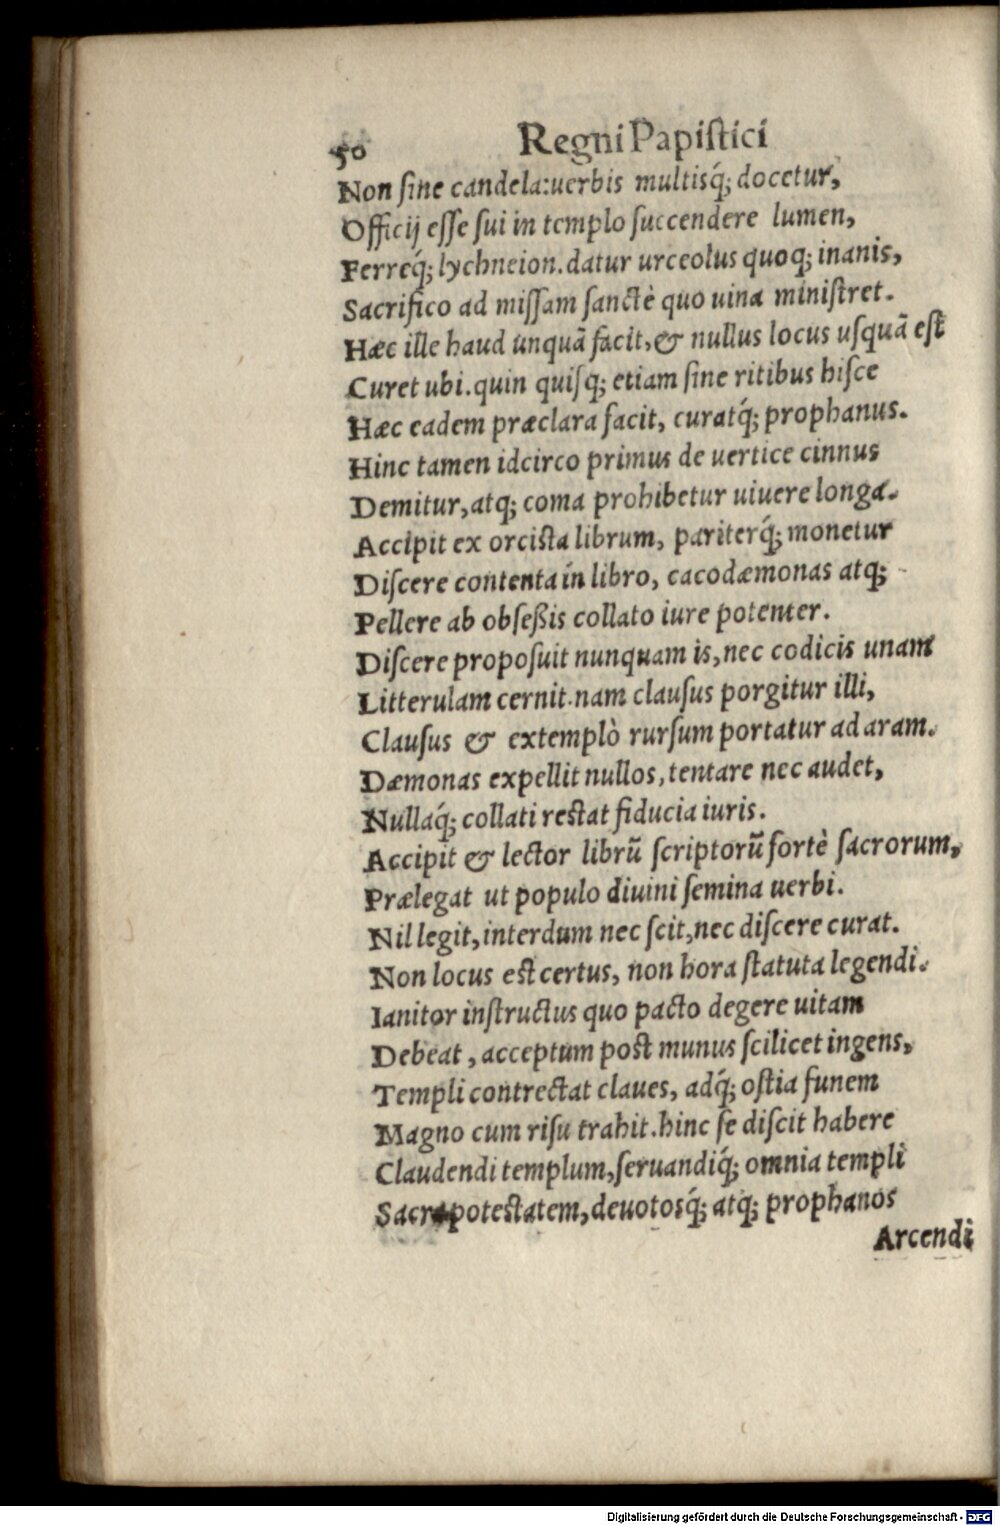 50 Regni Papiſtici
Non ſine candela: uerbis multisq́; docetur,
Officij eſſe ſui in templo ſuccendere lumen,
Ferreq́; lychneion. datur urceolus quoq; inanis,
Sacrifico ad miſſam ſanctè quo uina miniſtret.
Hæc ille haud unquã facit, & nullus locus uſquã eſt
Curet ubi. quin quiſq; etiam ſine ritibus hiſce
Hæc eadem præclara facit, curatq́; prophanus.
Hinc tamen idcirco primus de uertice cinnus
Demitur, atq; coma prohibetur uiuere longa.
Accipit ex orciſta librum, pariterq́; monetur
Diſcere contenta in libro, cacodæmonas atq;
Pellere ab obſeßis collato iure potenter.
Diſcere propoſuit nunquam is, nec codicis unam
Litterulam cernit. nam clauſus porgitur illi,
Clauſus & extemplò rurſum portatur ad aram.
Dæmonas expellit nullos, tentare nec audet,
Nullaq́; collati reſtat fiducia iuris.
Accipit & lector librũ ſcriptorũ fortè ſacrorum,
Prælegat ut populo diuini ſemina uerbi.
Nil legit, interdum nec ſcit, nec diſcere curat.
Non locus eſt certus, non hora ſtatuta legendi.
Ianitor inſtructus quo pacto degere uitam
Debeat, acceptum poſt munus ſcilicet ingens,
Templi contrectat claues, adq́; oſtia funem
Magno cum riſu trahit. hinc ſe diſcit habere
Claudendi templum, ſeruandiq́; omnia templi
Sacra poteſtatem, deuotosq́; atq; prophanos
Arcendi
Digitalisierung gefördert durch die Deutsche Forschungsgemeinschaft - DFG